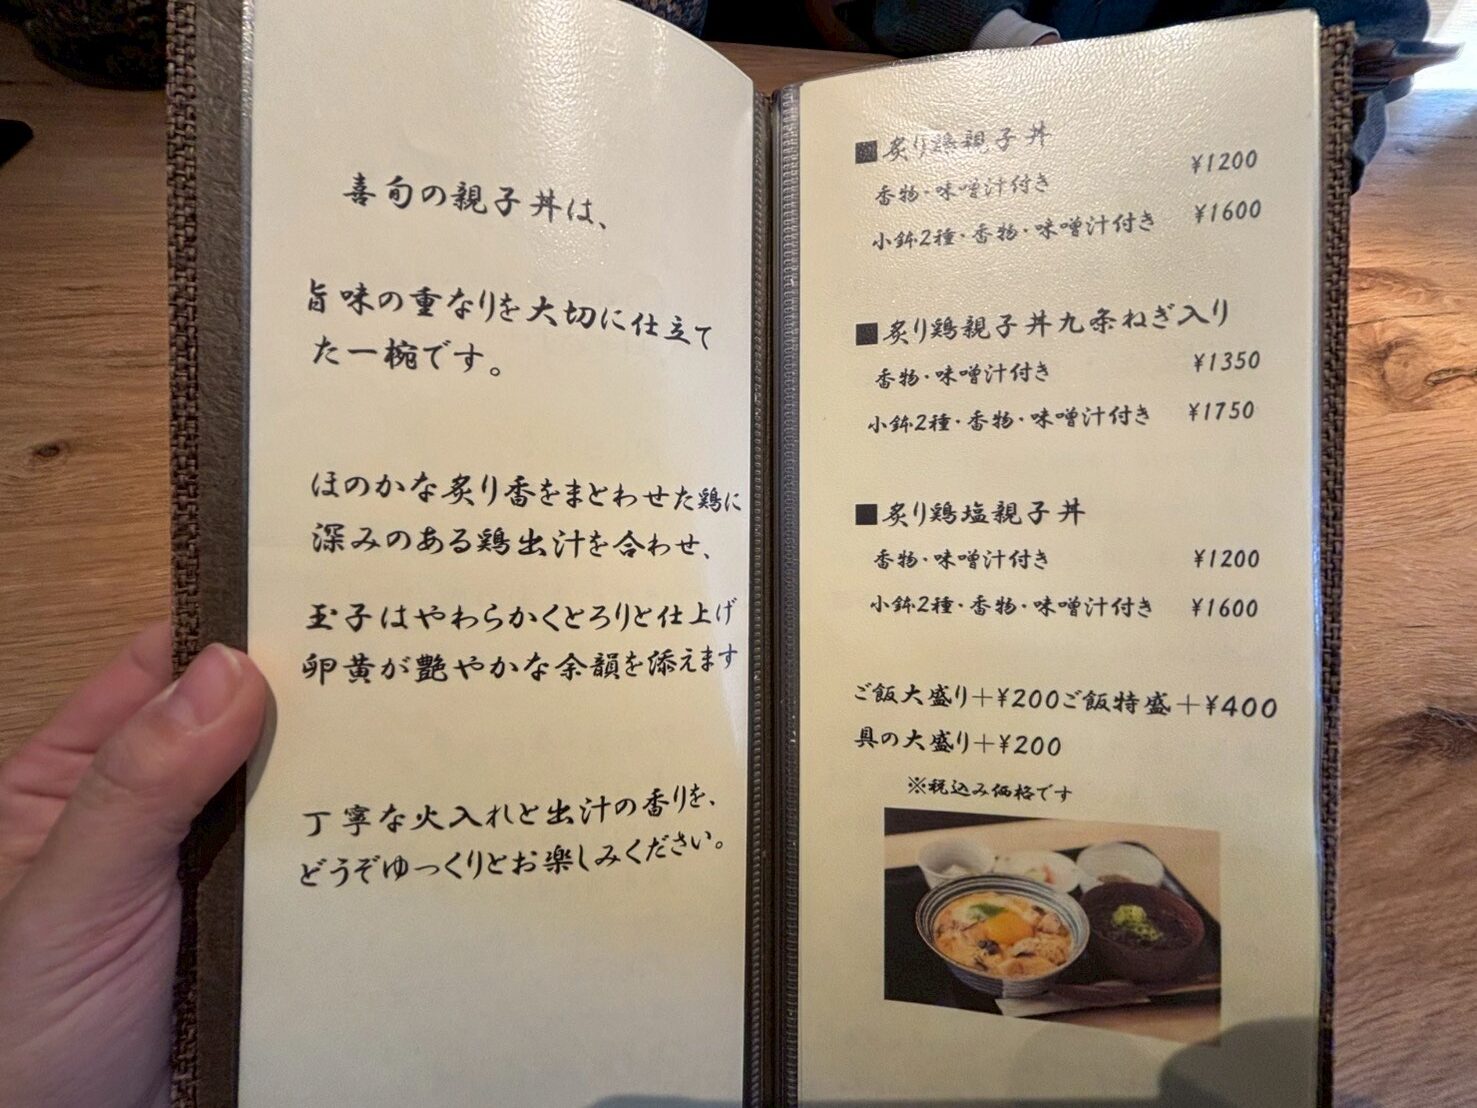 喜旬の親子丼は、
旨味の重なりを大切に仕立て
た一椀です。
ほのかな炙り香をまとわせた鶏に
深みのある鶏出汁を合わせ、
玉子はやわらかくとろりと仕上げ
卵黄が艶やかな余韻を添えます
丁寧な火入れと出汁の香りを、
どうぞゆっくりとお楽しみください。
■炙り鶏親子丼
香物・味噌汁付き ¥1200
小鉢2種・香物・味噌汁付き ¥1600
■炙り鶏親子丼九条ねぎ入り
香物・味噌汁付き ¥1350
小鉢2種・香物・味噌汁付き ¥1750
■炙り鶏塩親子丼
香物・味噌汁付き ¥1200
小鉢2種・香物・味噌汁付き ¥1600
ご飯大盛り+¥200ご飯特盛+¥400
具の大盛り+¥200
※税込み価格です